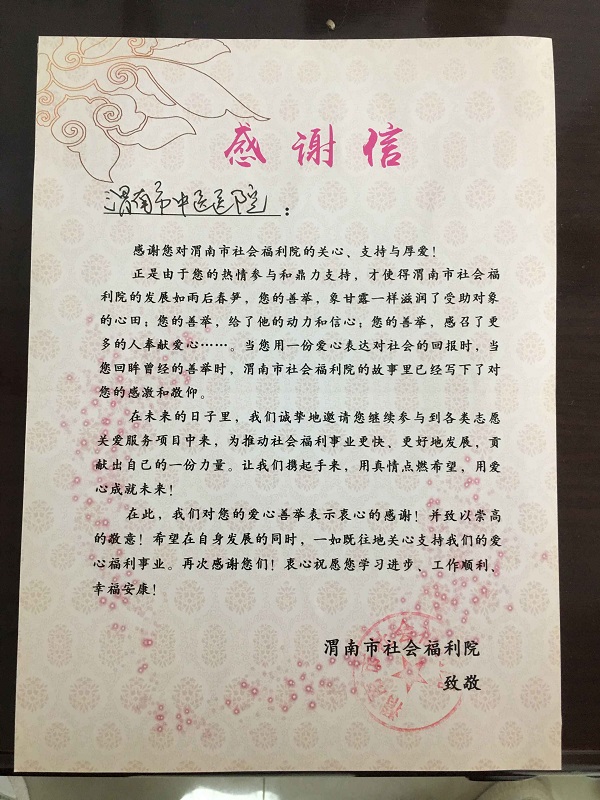 感谢信
渭南市中医医院：
感谢您对渭南市社会福利院的关心、支持与厚爱！
正是由于您的热情参与和鼎力支持，才使得渭南市社会福
利院的发展如雨后春笋，您的善举，象甘露一样滋润了受助对象
的心田；您的善举，给了他的动力和信心；您的善举，感召了更
多的人奉献爱心……。当您用一份爱心表达对社会的回报时，当
您回眸曾经的善举时，渭南市社会福利院的故事里已经写下了对
您的感激和敬仰。
在未来的日子里，我们诚挚地邀请您继续参与到各类志愿
关爱服务项目中来，为推动社会福利事业更快、更好地发展，贡
献出自己的一份力量。让我们携起手来，用真情点燃希望，用爱
心成就未来！
在此，我们对您的爱心善举表示衷心的感谢！并致以崇高
的敬意！希望在自身发展的同时，一如既往地关心支持我们的爱
心福利事业。再次感谢您们！衷心祝愿您学习进步、工作顺利、
幸福安康！
渭南市社会福利院
致敬